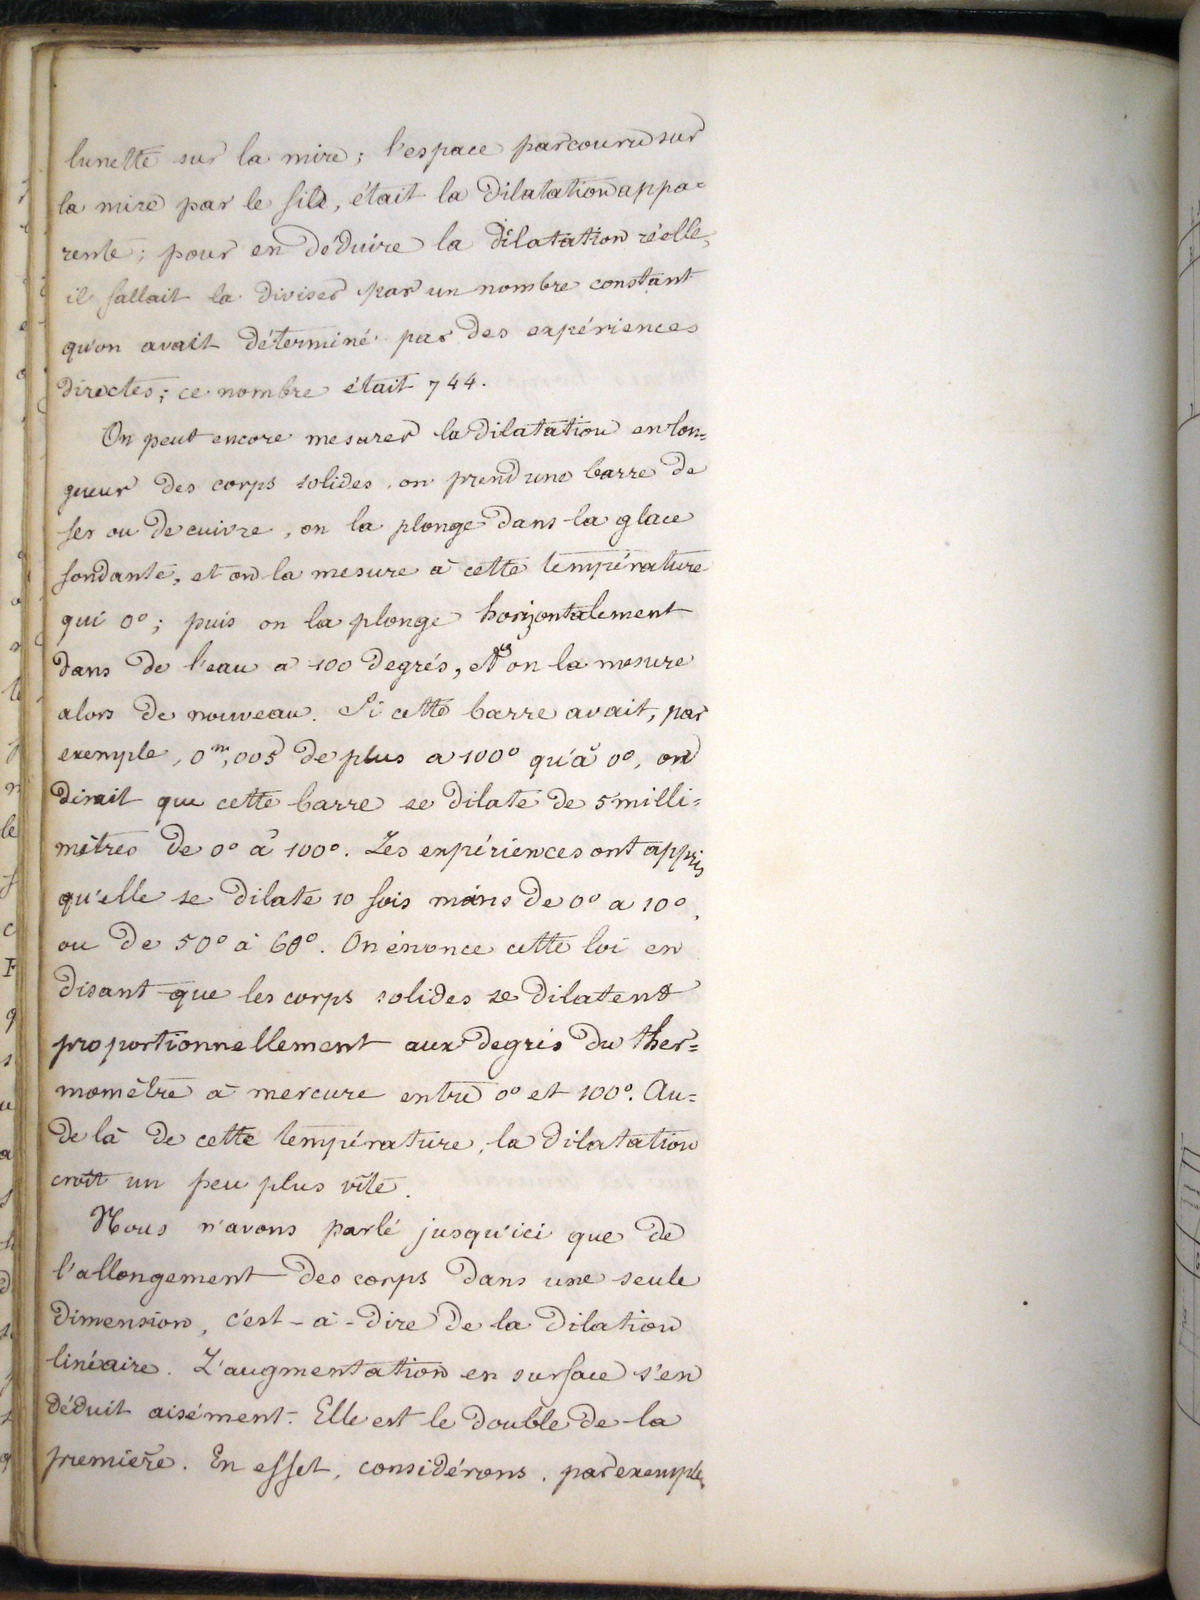 lunette sur la mire ; l'espace parcouru sur
la mire par le fil, était la dilatation appa-
rente ; pour en déduire la dilatation réelle,
il fallait la diviser par un nombre constant
qu'on avait déterminé par des expériences
directes ; ce nombre était 744.
On peut encore mesurer la dilatation en lon=
gueur des corps solides. on prend une barre de
fer ou de cuivre, on la plonge dans la glace
fondante, et on la mesure à cette température
qui 0° ; puis on la plonge horizontalement
dans de l'eau a 100 degrés, et on la mesure
alors de nouveau. Si cette barre avait, par
exemple, 0m,005 de plus a 100° qu'à 0°, on
dirait que cette barre se dilate de 5 milli=
mètres de 0° à 100°. Les expériences ont appris
qu'elle se dilate 10 fois moins de 0° a 10°,
ou de 50° à 60°. On énonce cette loi en
disant que les corps solides se dilatent
proportionnellement aux degrés du ther=
momètre à mercure entre 0° et 100°. Au=
delà de cette température, la dilatation
croît un peu plus vîte.
Nous n'avons parlé jusqu'ici que de
l'allongement des corps dans une seule
dimension, c'est-à-dire de la dilation
linéaire. L'augmentation en surface s'en
déduit aisément. Elle est le double de la
première. En effet, considérons, par exemple,